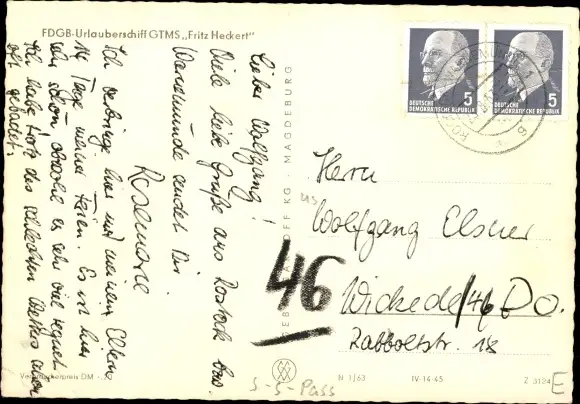 FDGB-Urlauberschiff GTMS „Fritz Heckert"
Lieber Wolfgang!
Viele liebe Grüße aus Rostock bzw.
Warnemünde sendet Dir
Rosemarie
Ich verbringe hier mit meinen Eltern
14 Tage meiner Ferien. Es ist hier
sehr schön, obwohl es sehr viel regnet.
Ich habe trotz des schlechten Wetters schon
oft gebadet.
Verbraucherpreis DM
MAGDEBURG
DEUTSCHE
DEMOKRATISCHE REPUBLIK
5
DEUTSCHE
DEMOKRATISCHE REPUBLIK
5
Herrn
Wolfgang Elsner
46
Wickede/46 Do.
Rabboltstr. 18
S-S-Pass
N 1/63
IV-14-45
Z 3124
E